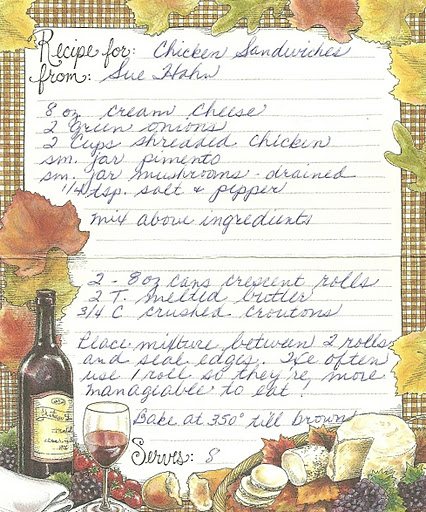 Recipe for: Chicken Sandwiches
from: Sue Hahn
8 oz cream cheese
2 Green onions
2 Cups shredded chicken
sm. jar pimento
sm. jar mushrooms - drained
1/4 tsp. salt & pepper
Mix above ingredients
2 - 8 oz cans crescent rolls
2 T. melted butter
3/4 C crushed croutons
Place mixture between 2 rolls
and seal edges. We often
use 1 roll so they're more
manageable to eat!
Bake at 350° till brown
Serves: 8